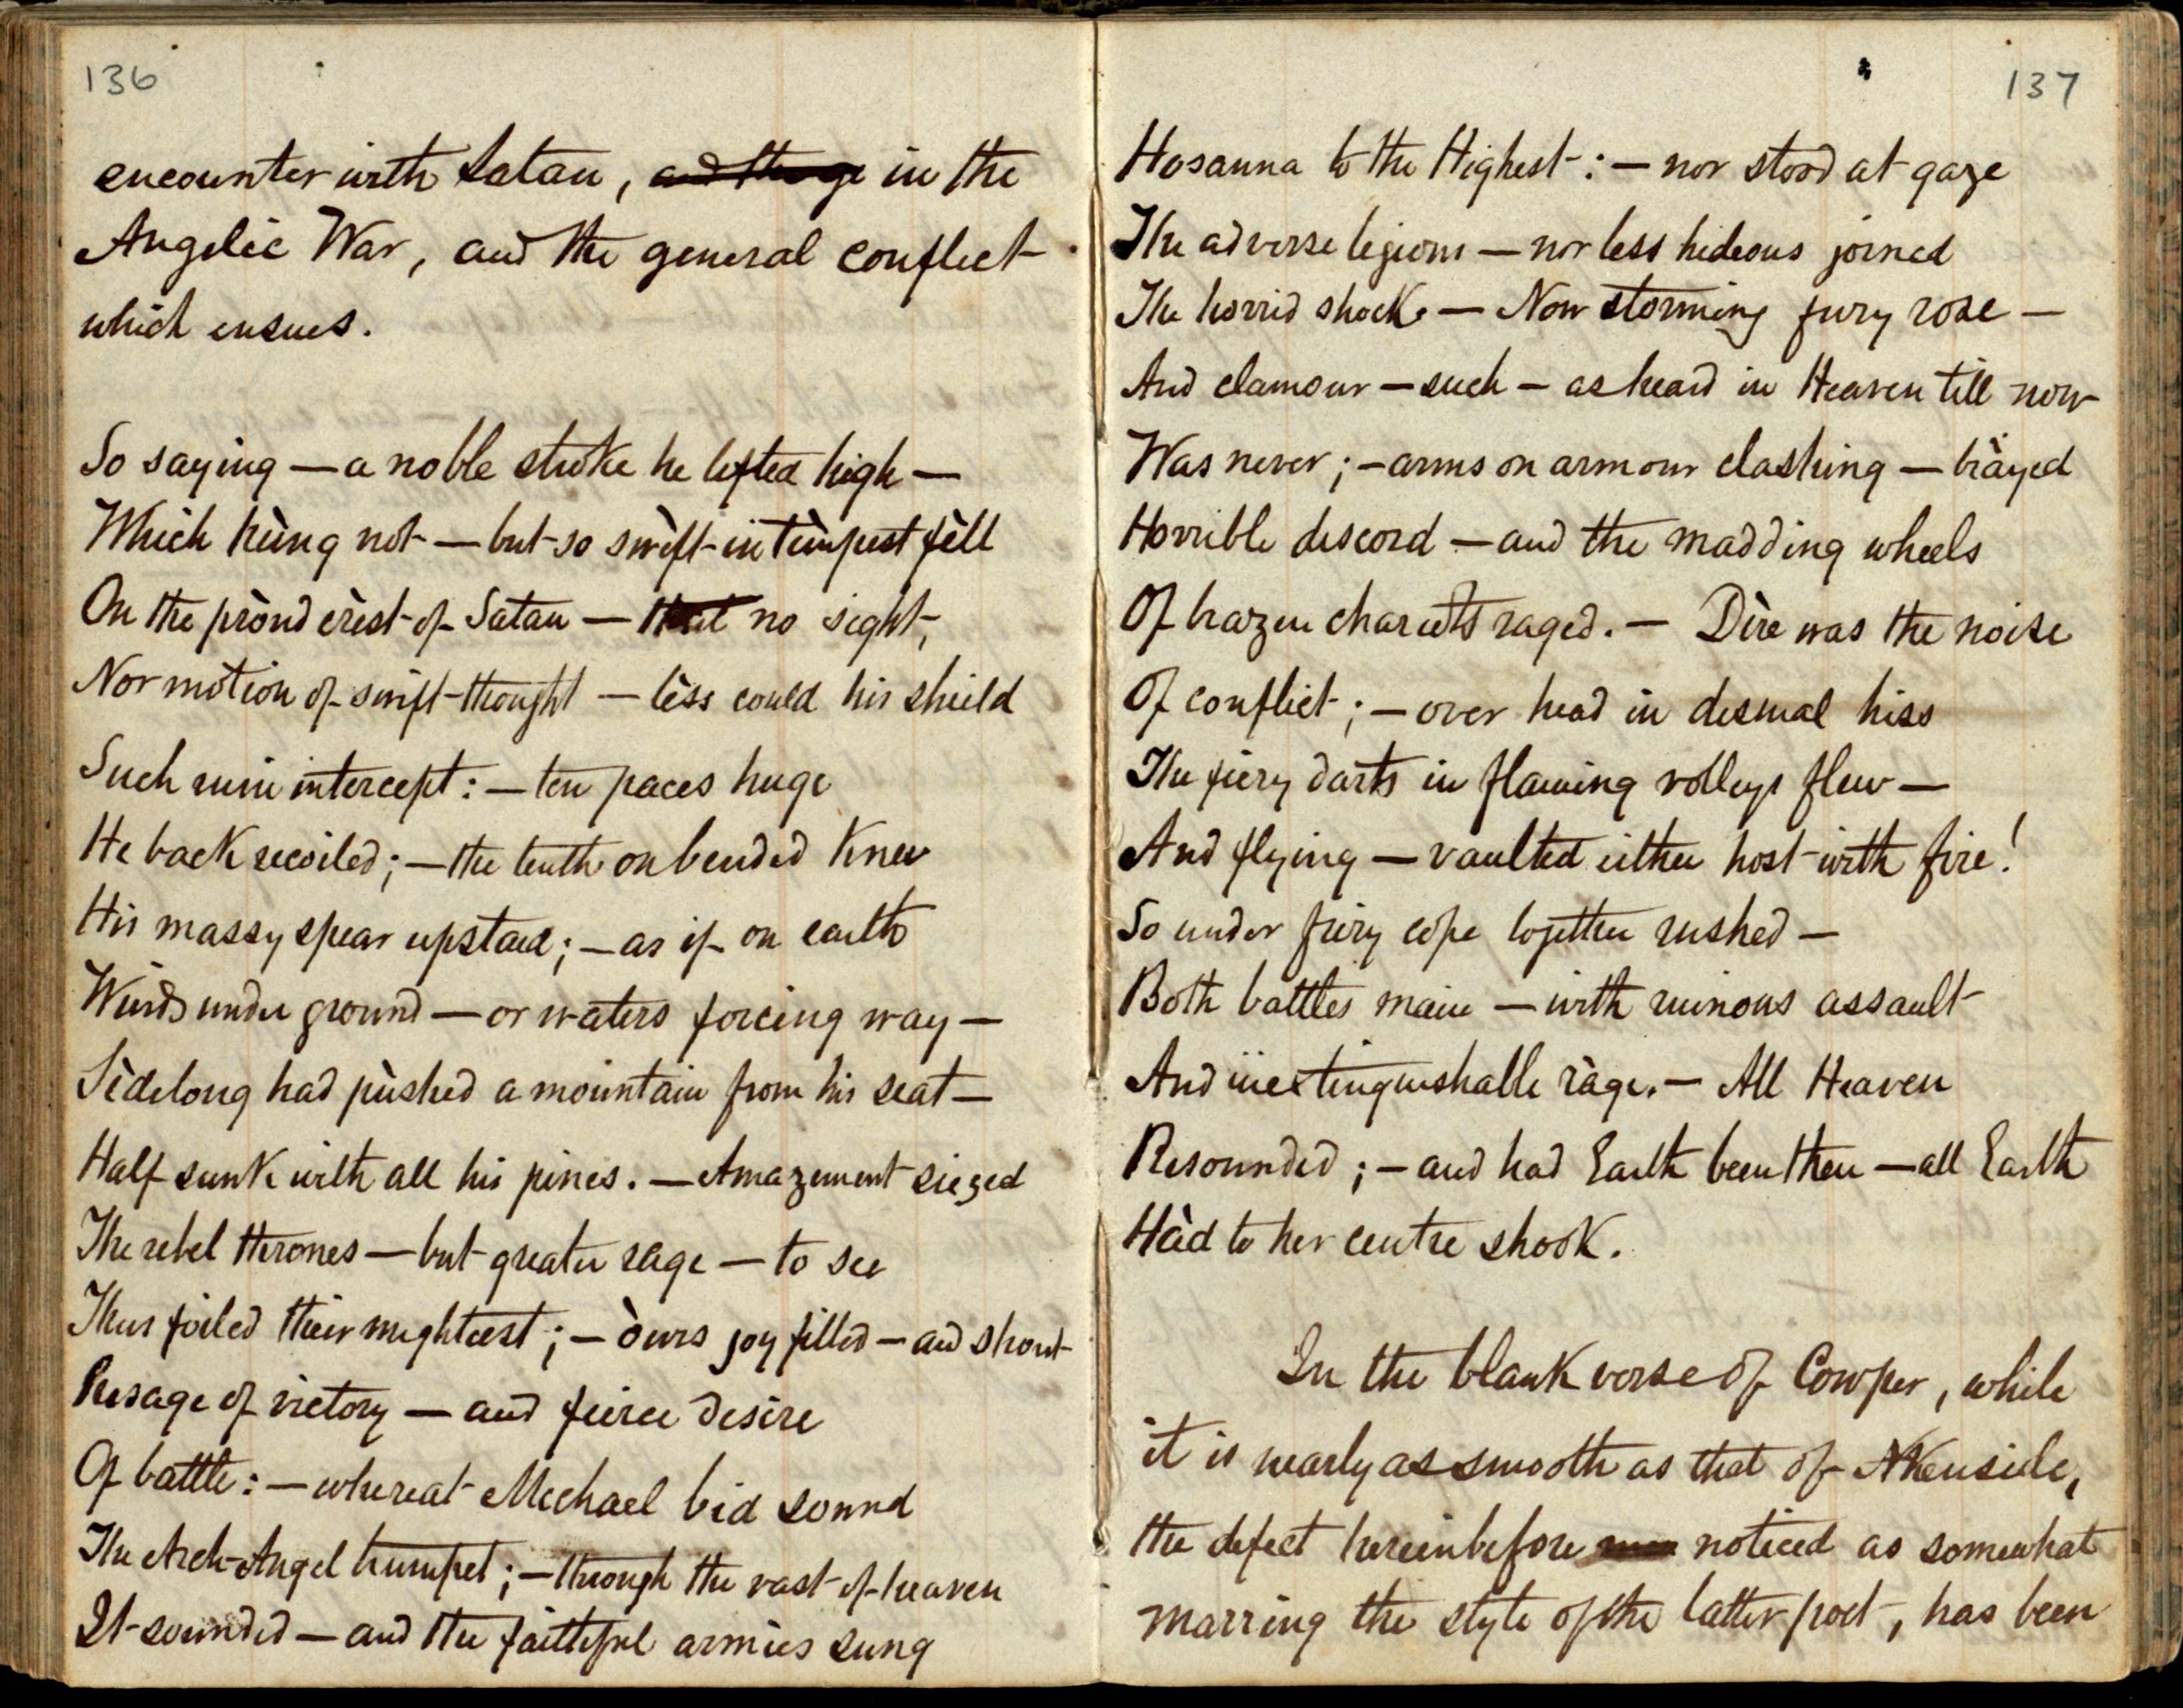 136
encounter with Satan, in the
Angelic War, and the general conflict
which ensues.
So saying — a noble stroke he lifted high —
Which hùng not — but so swìft in tèmpest fèll
On the pròud crèst of Satan — that no sight,
Nor motion of swift thought — lèss could his shield
Such ruin intercept: — ten paces huge
He back recoiled; — the tenth on bended Knee
His massy spear upstaid; — as if on earth
Winds under ground — or waters forcing way —
Sìdelong had pùshed a mountain from his seat —
Half sunk with all his pines. — Amazement siezed
The rebel thrones — but greater rage — to see
Thus foiled their mightiest; — òurs joy filled — and shout
Presage of victory — and feirce desire
Of battle: — whereat Michael bid sound
The Arch-Angel trumpet; — through the vast of heaven
It sounded — and the faithful armies sung
137
Hosanna to the Highest: — nor stood at gaze
The adverse legions — nor less hideous joined
The horrid shock. — Now storming fury rose —
And clamour — such — as heard in Heaven till now
Was never; — arms on armour clashing — bràyed
Horrible discord — and the madding wheels
Of brazen chariots raged. — Dìre was the noise
Of conflict; — over head in dismal hiss
The fiery darts in flaming volleys flew —
And flying — vaulted either host with fire!
So under fiery cope together rushed —
Both battles main — with ruinous assault
And inextinguishable ràge. — All Heaven
Resounded; — and had Earth been then — all Earth
Hàd to her centre shook.
In the blank verse of Cowper, while
it is nearly as smooth as that of Akenside,
the defect hereinbefore noticed as somewhat
marring the style of the latter poet, has been